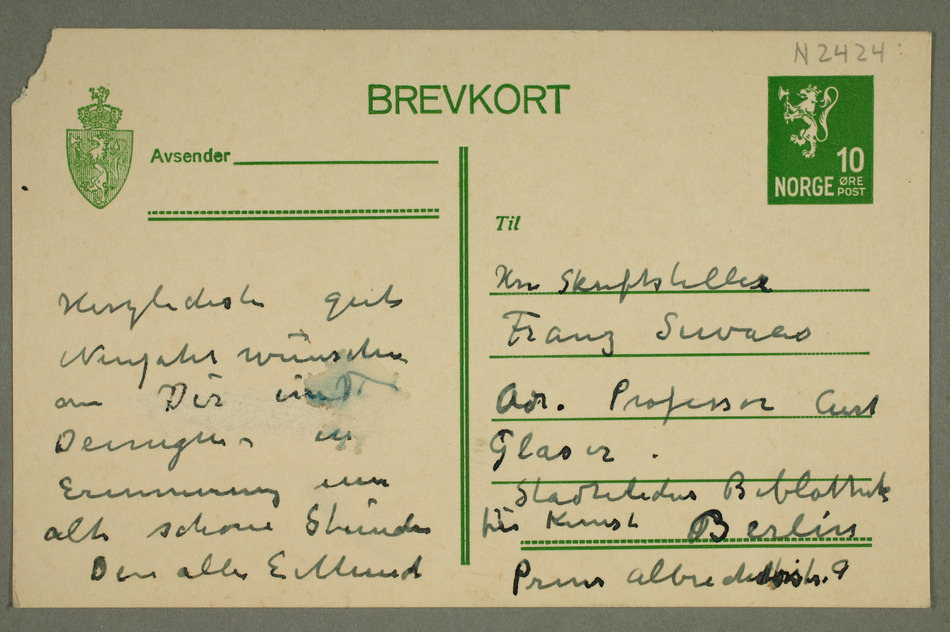 N 2424
BREVKORT
Avsender
10
NORGE ØRE
POST
Til
Herzlichste guts
Neujahr wünsche
an Dir und
Deinigen in
Erinnerung
alte schöne Stunden
Dein alter E Munch
Hrn Skriftsteller
Franz Servaes
Adr. Professor Curt
Glaser.
Bibliothek
für Kunst Berlin
Prins Albrechtstr. 9